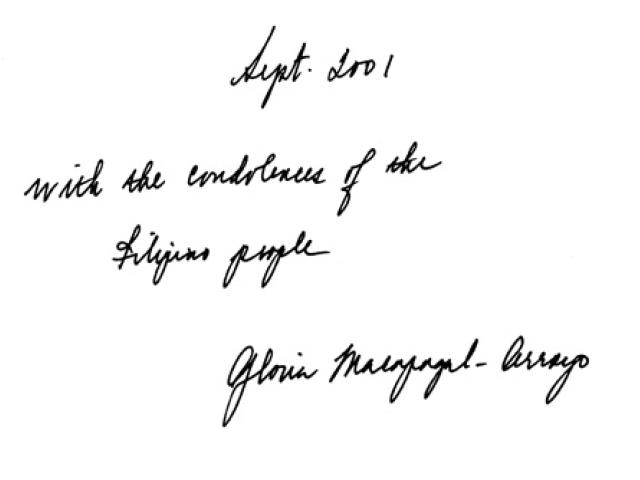 Sept. 2001
with the condolences of the
Filipino people
Gloria Macapagal-Arroyo